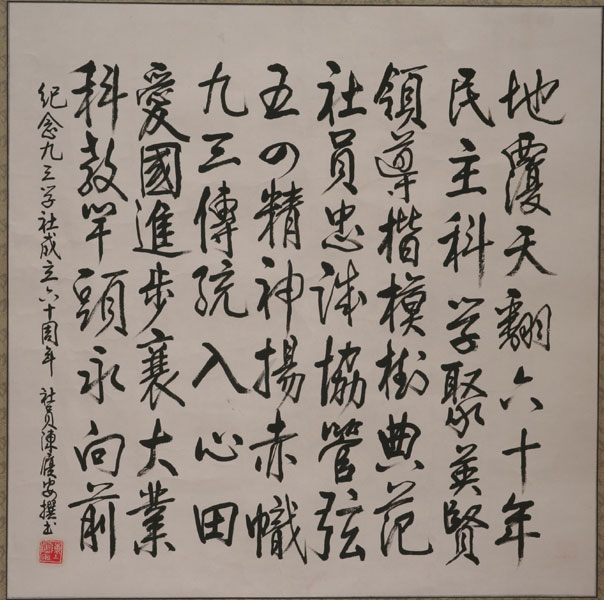 地覆天翻六十年
民主科学聚英賢
領導楷模樹典范
社員忠誠協管弦
五四精神揚赤幟
九三傳統入心田
愛國進步襄大業
科教竿頭永向前
紀念九三学社成立六十周年 社員陳應安撰书